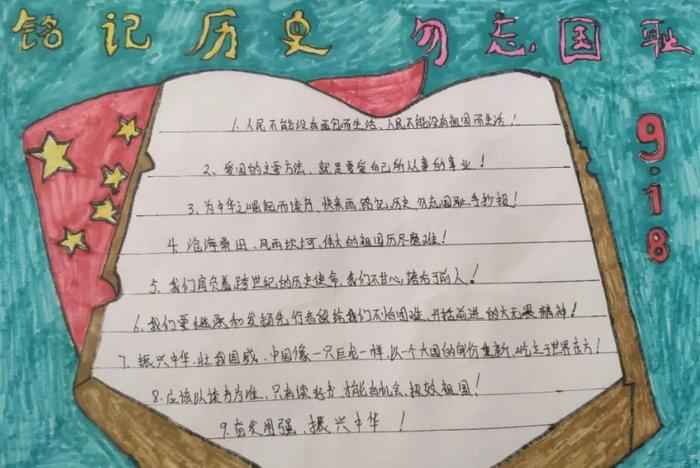 铭记历史 勿忘国耻
9.18
1.人民不能没有面包而生活、人民不能没有祖国而生活!
2、爱国的主要方法,就是要爱自己所从事的事业!
3、为中华之崛起而读书,快来画铭记历史勿忘国耻手抄报!
4.沧海桑田、风雨坎坷,伟大的祖国历尽磨难!
5、我们肩负着跨世纪的历史使命,我们不甘心落后于前人!
6、我们要继承和发扬先行者留给我们不怕困难、开拓前进的大无畏精神!
7、振兴中华,壮我国威、中国像一只巨龙一样,以一个大国的身份重新屹立于世界东方!
8.应该以读书为准,只有读好书才能有机会报效祖国!
9.奋发用强、振兴中华!